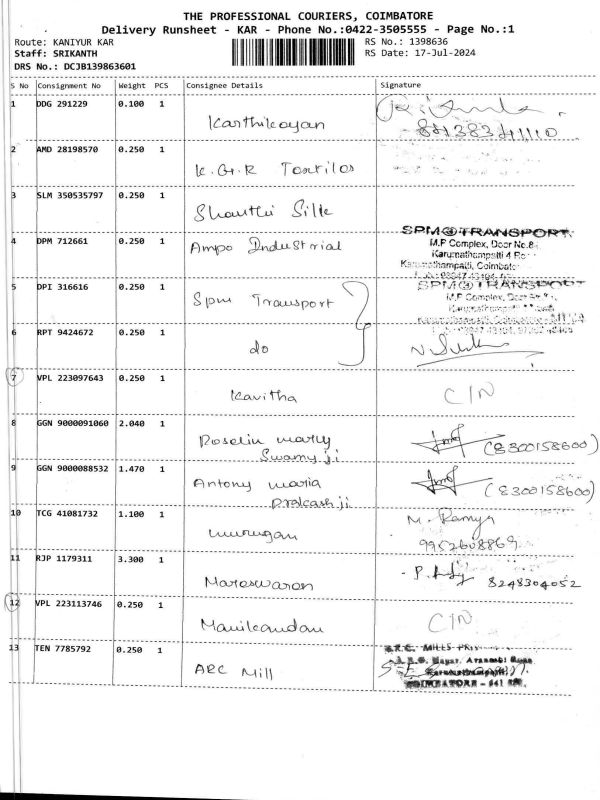 THE PROFESSIONAL COURIERS, COIMBATORE
Delivery Runsheet - KAR - Phone No.:0422-3505555 - Page No.:1
Route: KANIYUR KAR RS No.: 1398636
Staff: SRIKANTH RS Date: 17-Jul-2024
DRS No.: DCJB139863601
S No Consignment No Weight PCS Consignee Details Signature
1 DDG 291229 0.100 1
Karthikayan
2 AMD 28198570 0.250 1
K.G.R Textiles
3 SLM 350535797 0.250 1
Shanthi Silk
4 DPM 712661 0.250 1 Ampo Industrial
SPM@TRANSPORT
M.P Complex, Door No.8
Karumathampatti
5 DPI 316616 0.250 1 Spm Transport
SPM@TRANSPORT
6 RPT 9424672 0.250 1 do
7 VPL 223097643 0.250 1 C/N
Kavitha
8 GGN 9000091060 2.040 1
Roselin mary (8300158600)
Swamy ji
9 GGN 9000088532 1.470 1
Antony maria (8300158600)
Prakash ji
10 TCG 41081732 1.100 1 M. Ramya
Murugan 9952608869
11 RJP 1179311 3.300 1
Mareswaran 8248304052
12 VPL 223113746 0.250 1 C/N
Manikandan
13 TEN 7785792 0.250 1
ARC Mill
COIMBATORE - 641